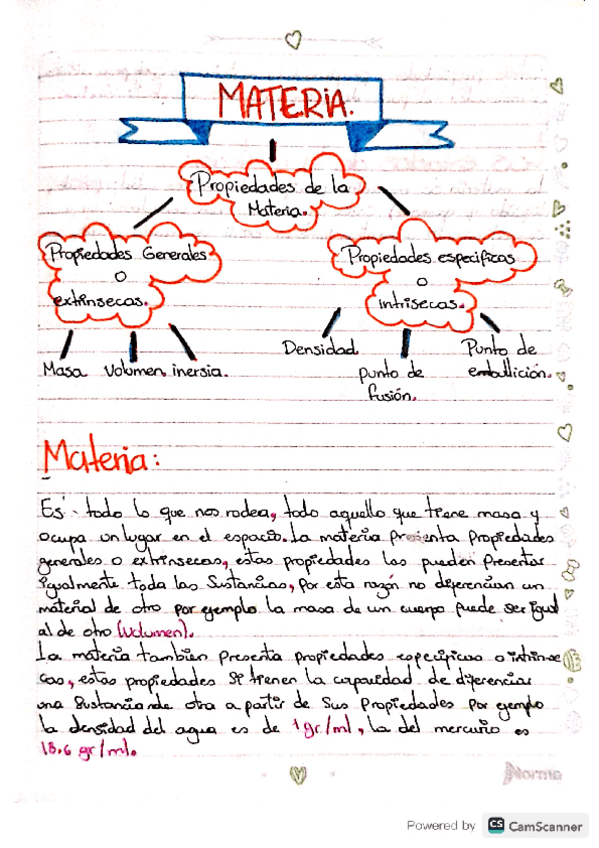 MATERIA.
Propiedades de la
Materia.
Propiedades Generales
o
extrinsecas.
Propiedades especificas
o
intrisecas.
Masa Volumen inersia.
Densidad
punto de
fusión.
Punto de
embullición.
Materia:
Es: todo lo que nos rodea, todo aquello que tiene masa y
ocupa un lugar en el espacio. La materia presenta propiedades
generales o extrinsecas, estas propiedades las pueden presentar
igualmente toda las Sustancias, por esta razón no diferencian un
material de otro por ejemplo la masa de un cuerpo puede ser igual
al de otro (volumen).
La materia tambien presenta propiedades especificas o intrinse
cas, estas propiedades si tienen la capacidad de diferenciar
una Sustancia de otra a partir de sus propiedades por ejemplo
la densidad del agua es de 1gr/ml, la del mercurio es
13.6 gr/ml.
Norma
Powered by CS CamScanner